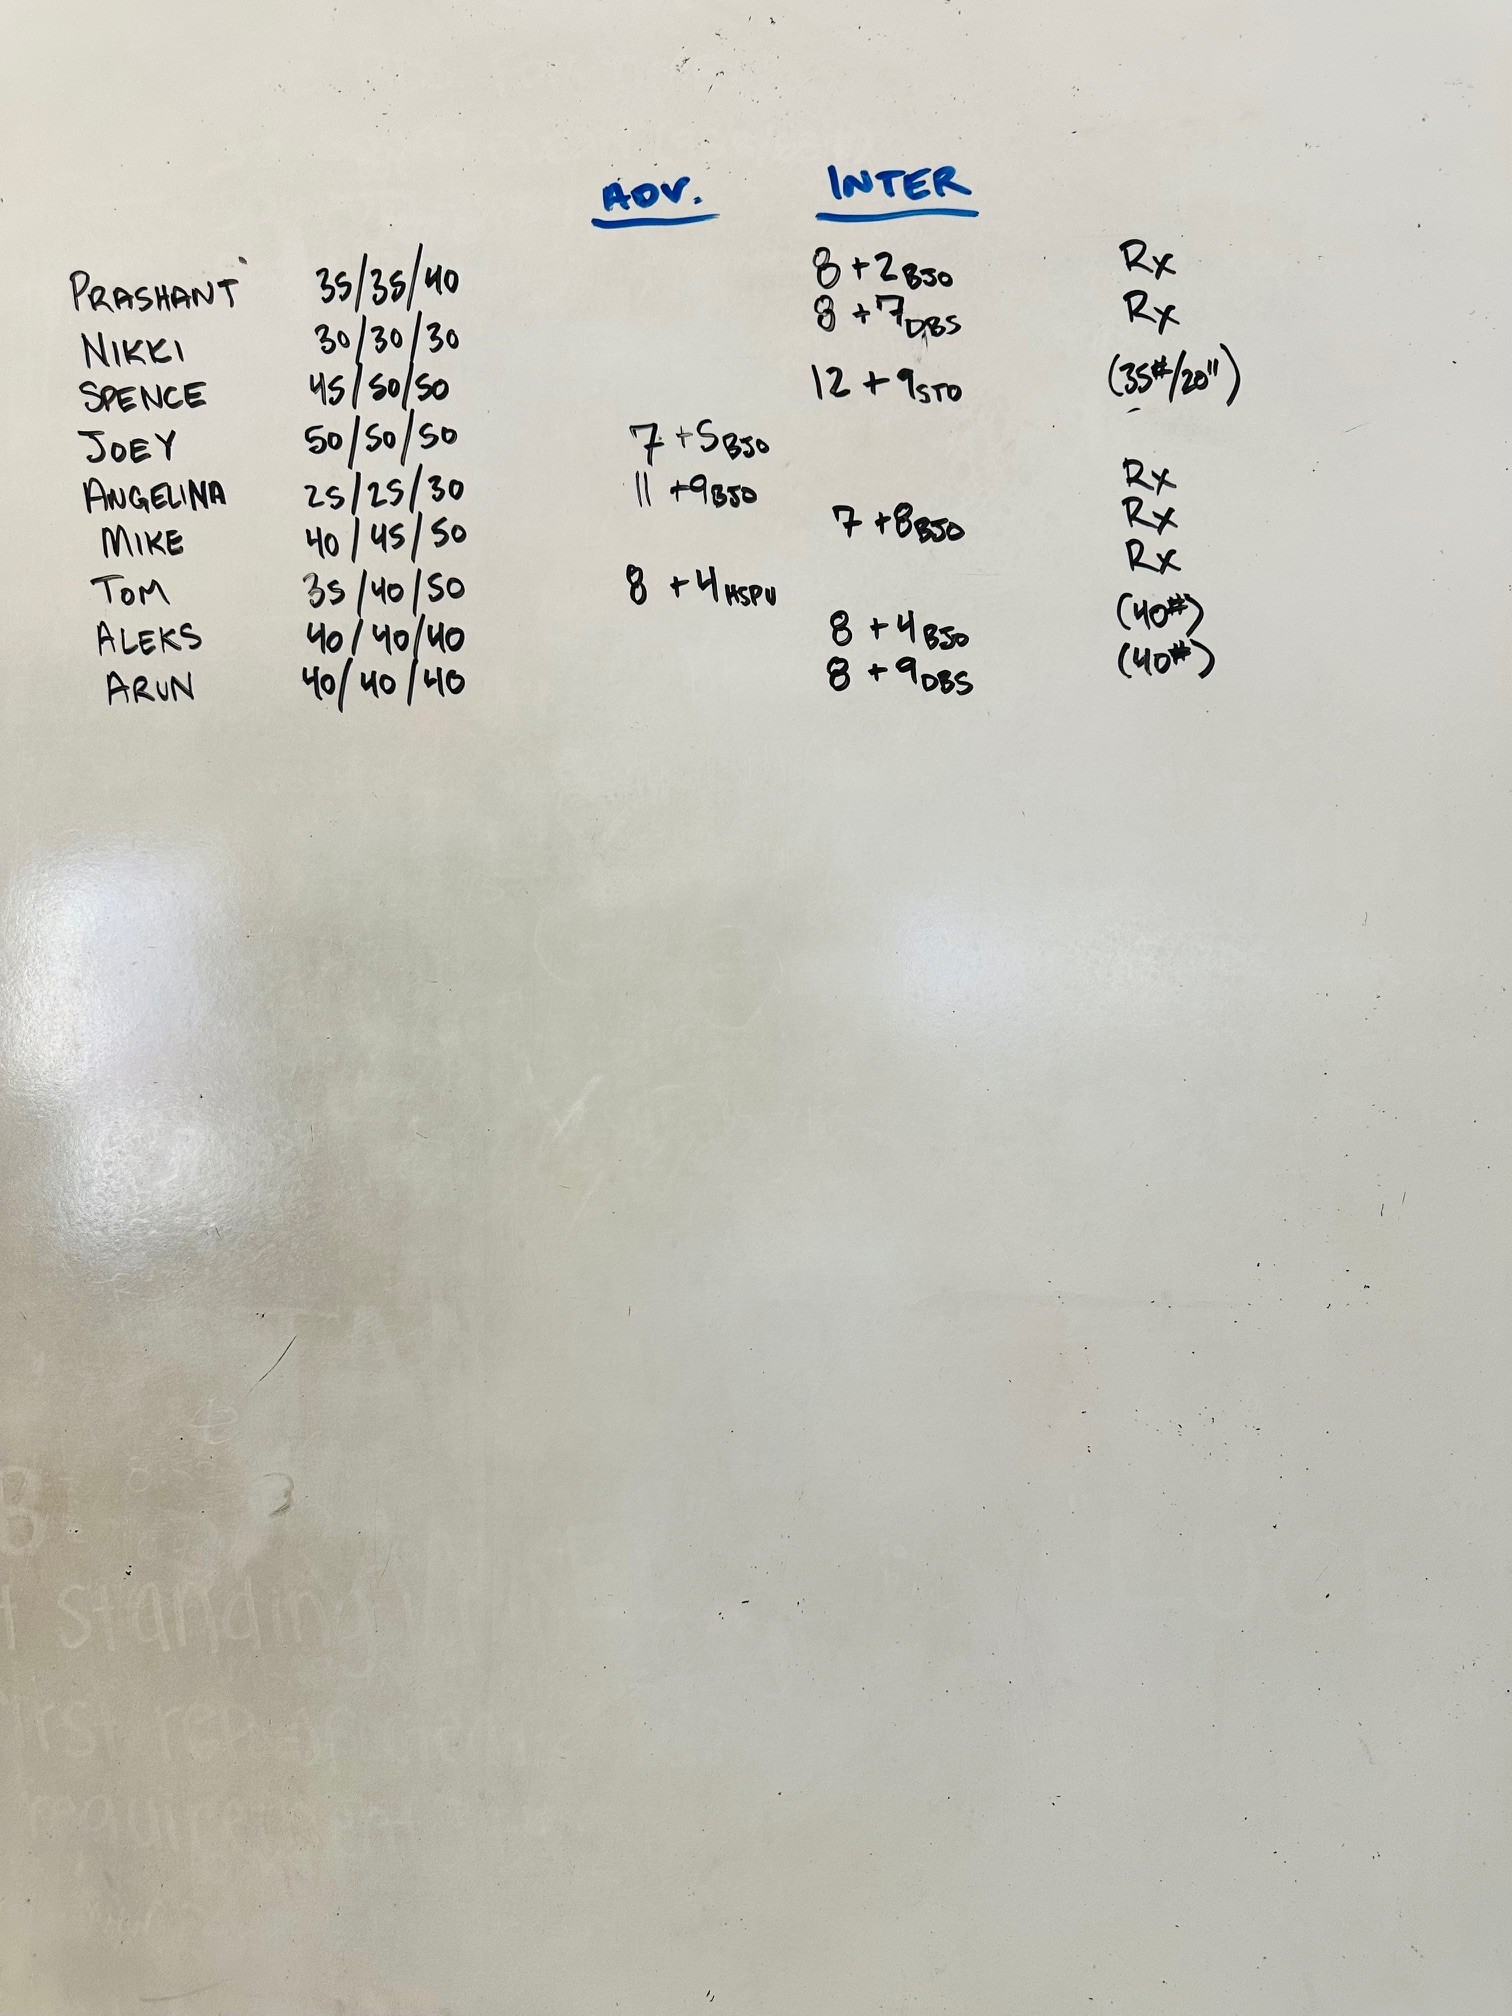 ADV. INTER
PRASHANT 35/35/40 8 + 2 BJO Rx
NIKKI 30/30/30 8 + 7 DBS Rx
SPENCE 45/50/50 12 + 9 STO (35#/20")
JOEY 50/50/50 7 + 5 BJO
ANGELINA 25/25/30 11 + 9 BJO Rx
MIKE 40/45/50 7 + 8 BJO Rx
TOM 35/40/50 8 + 4 HSPU Rx
ALEKS 40/40/40 8 + 4 BJO (40#)
ARUN 40/40/40 8 + 9 DBS (40#)
standing